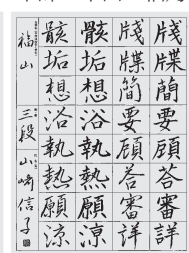 牋牒蕳要顧答審詳
牋牒簡要顧答審詳
骸垢想浴執熱願涼
骸垢想浴執熱願涼
福山 三段 山崎信子